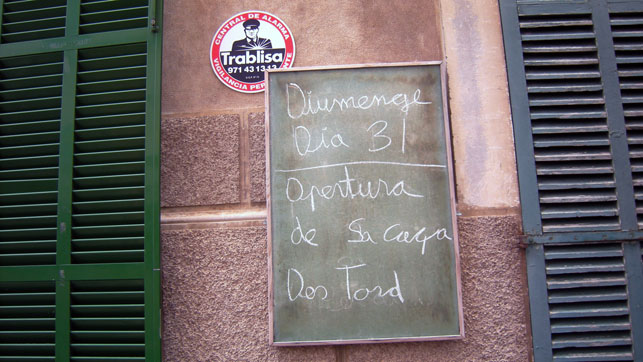 CENTRAL DE ALARMA
Trablisa
971 43 13 13
VIGILANCIA PERMANENTE
Diumenge
Dia 31
Apertura
de Sa caça
Des Tord